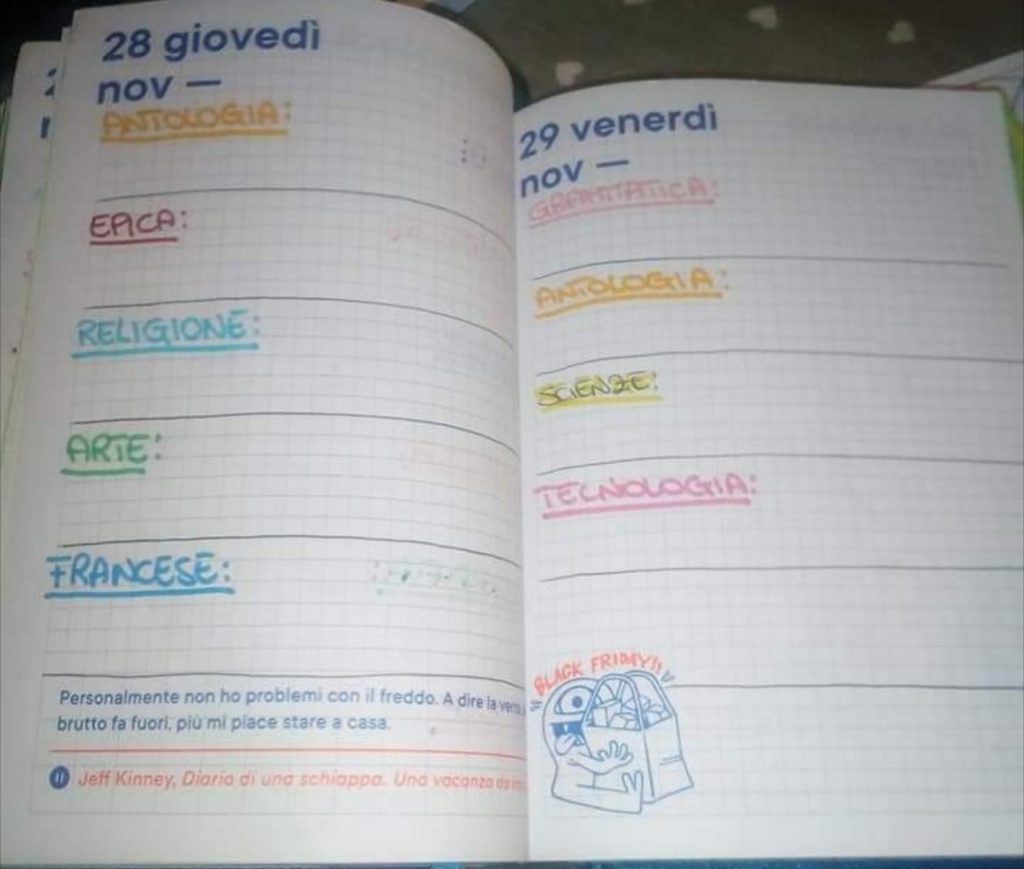 28 giovedì
nov —
ANTOLOGIA:
EPICA:
RELIGIONE:
ARTE:
FRANCESE:
Personalmente non ho problemi con il freddo. A dire la
brutto fa fuori, più mi piace stare a casa.
Jeff Kinney, Diario di una schiappa. Una vacanza
29 venerdì
nov —
GRAMMATICA:
ANTOLOGIA:
SCIENZE:
TECNOLOGIA:
BLACK FRIDAY!!